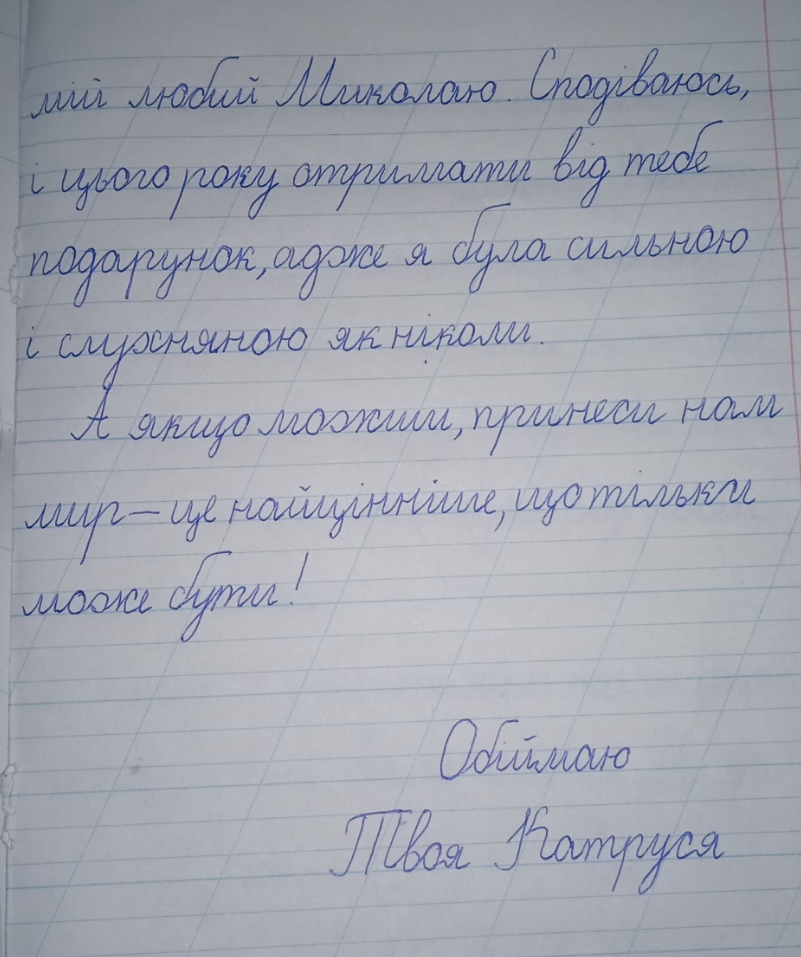 мій любий Миколаю. Сподіваюсь,
і цього року отримати від тебе
подарунок, адже я була сильною
і слухняною як ніколи.
А якщо можиш, принеси нам
мир – це найцінніше, що тільки
може бути!
Обіймаю
Твоя Катруся